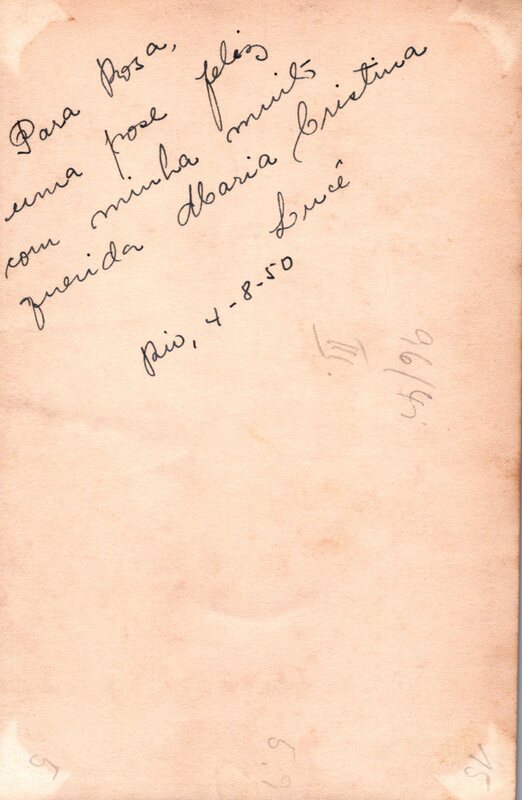 Para Rosa,
uma pose feliz
com minha muito
querida Maria Cristina
Lucê
Rio, 4-8-50
III